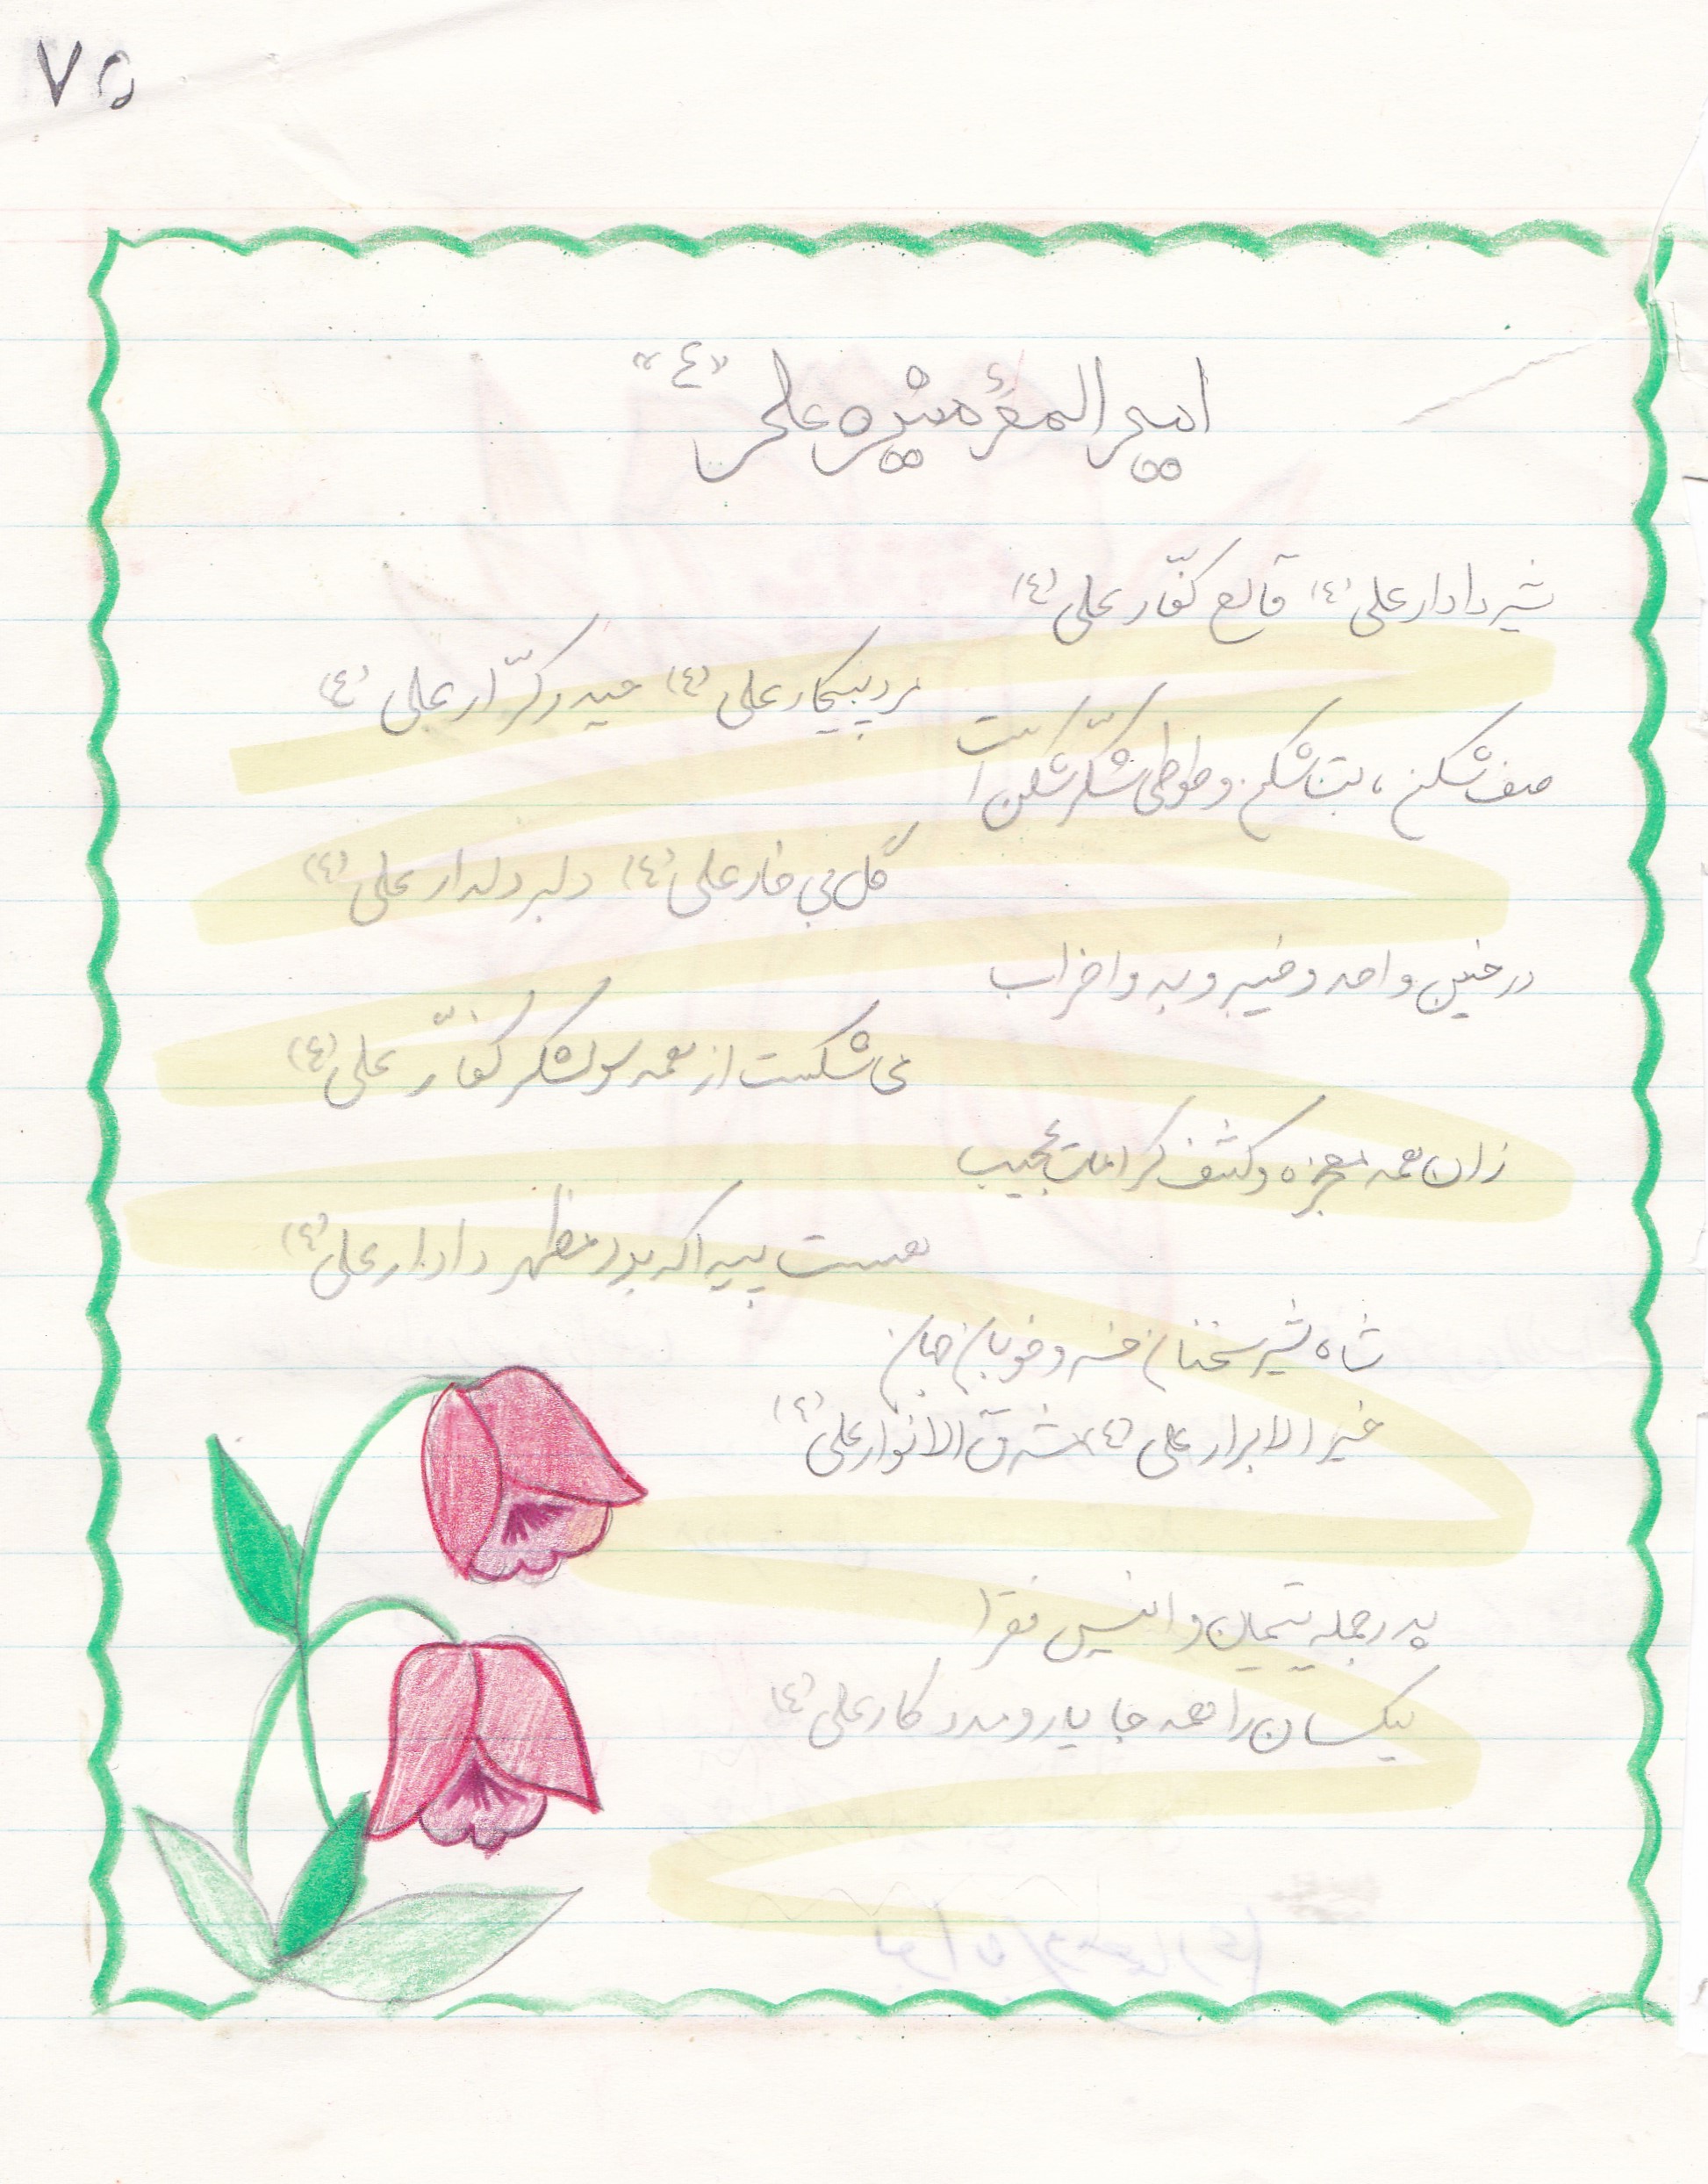 ۷۵
امیرالمؤمنین علی «ع»
شیر دادار علی (ع) قالع کفّار علی (ع)
مرد پیکار علی (ع) حیدر کرّار علی (ع)
صف شکن، بت شکن و طوطی شکّر شکن است
گل بی خار علی (ع) دلبر دلدار علی (ع)
در حنین و احد و خیبر و بدر و احزاب
می شکست از همه سو لشکر کفّار علی (ع)
زان همه معجزه و کشف کرامات عجیب
هست پیدا که بود مظهر دادار علی (ع)
شاه شیر سخنان خسرو خوبان جهان
خیر الابرار علی (ع) مشرق الانوار علی (ع)
پدر جمله یتیمان و انیس فقرا
بیکسان را همه جا یار و مددکار علی (ع)